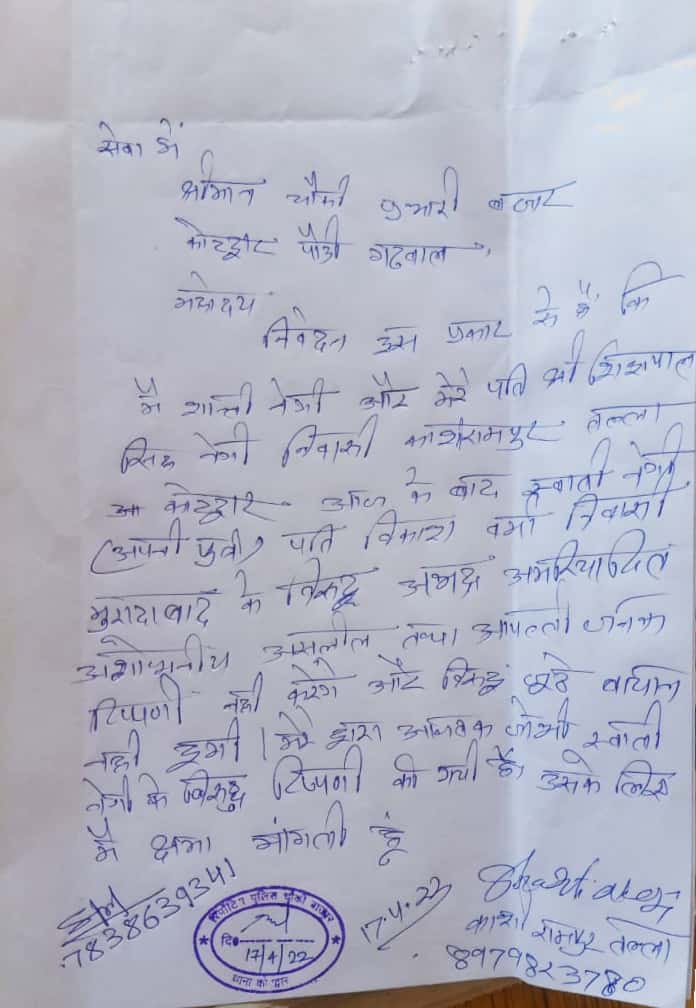 सेवा में
श्रीमान चौकी प्रभारी बाजार
कोटद्वार पौडी गढवाल,
महोदय
निवेदन इस प्रकार से है, कि
मै शान्ती नेगी और मेरे पति श्री शिशपाल
सिंह नेगी निवासी काशीरामपुर तल्ला
कोटद्वार आज के बाद स्वाती नेगी
(अपनी पुत्री) पति विकाश वर्मा निवासी
मुरादाबाद के विरुद्ध अभद्र अमरियादित
अशोभनीय असलील तथा आपत्ती जनक
टिप्पणी नही करेगे और विरुद्ध झूठे
नही दूगी। मेरे द्वारा आजतक जो भी स्वाती
नेगी के विरुद्ध टिप्पणी की गयी है, उसके लिए
मै क्षमा मांगती हूं
7838639341
रिपोर्टिंग पुलिस चौकी बाजार
दि०
17/4/22
थाना कोटद्वार
17.4.22
काशीरामपुर तल्ला
8979823780